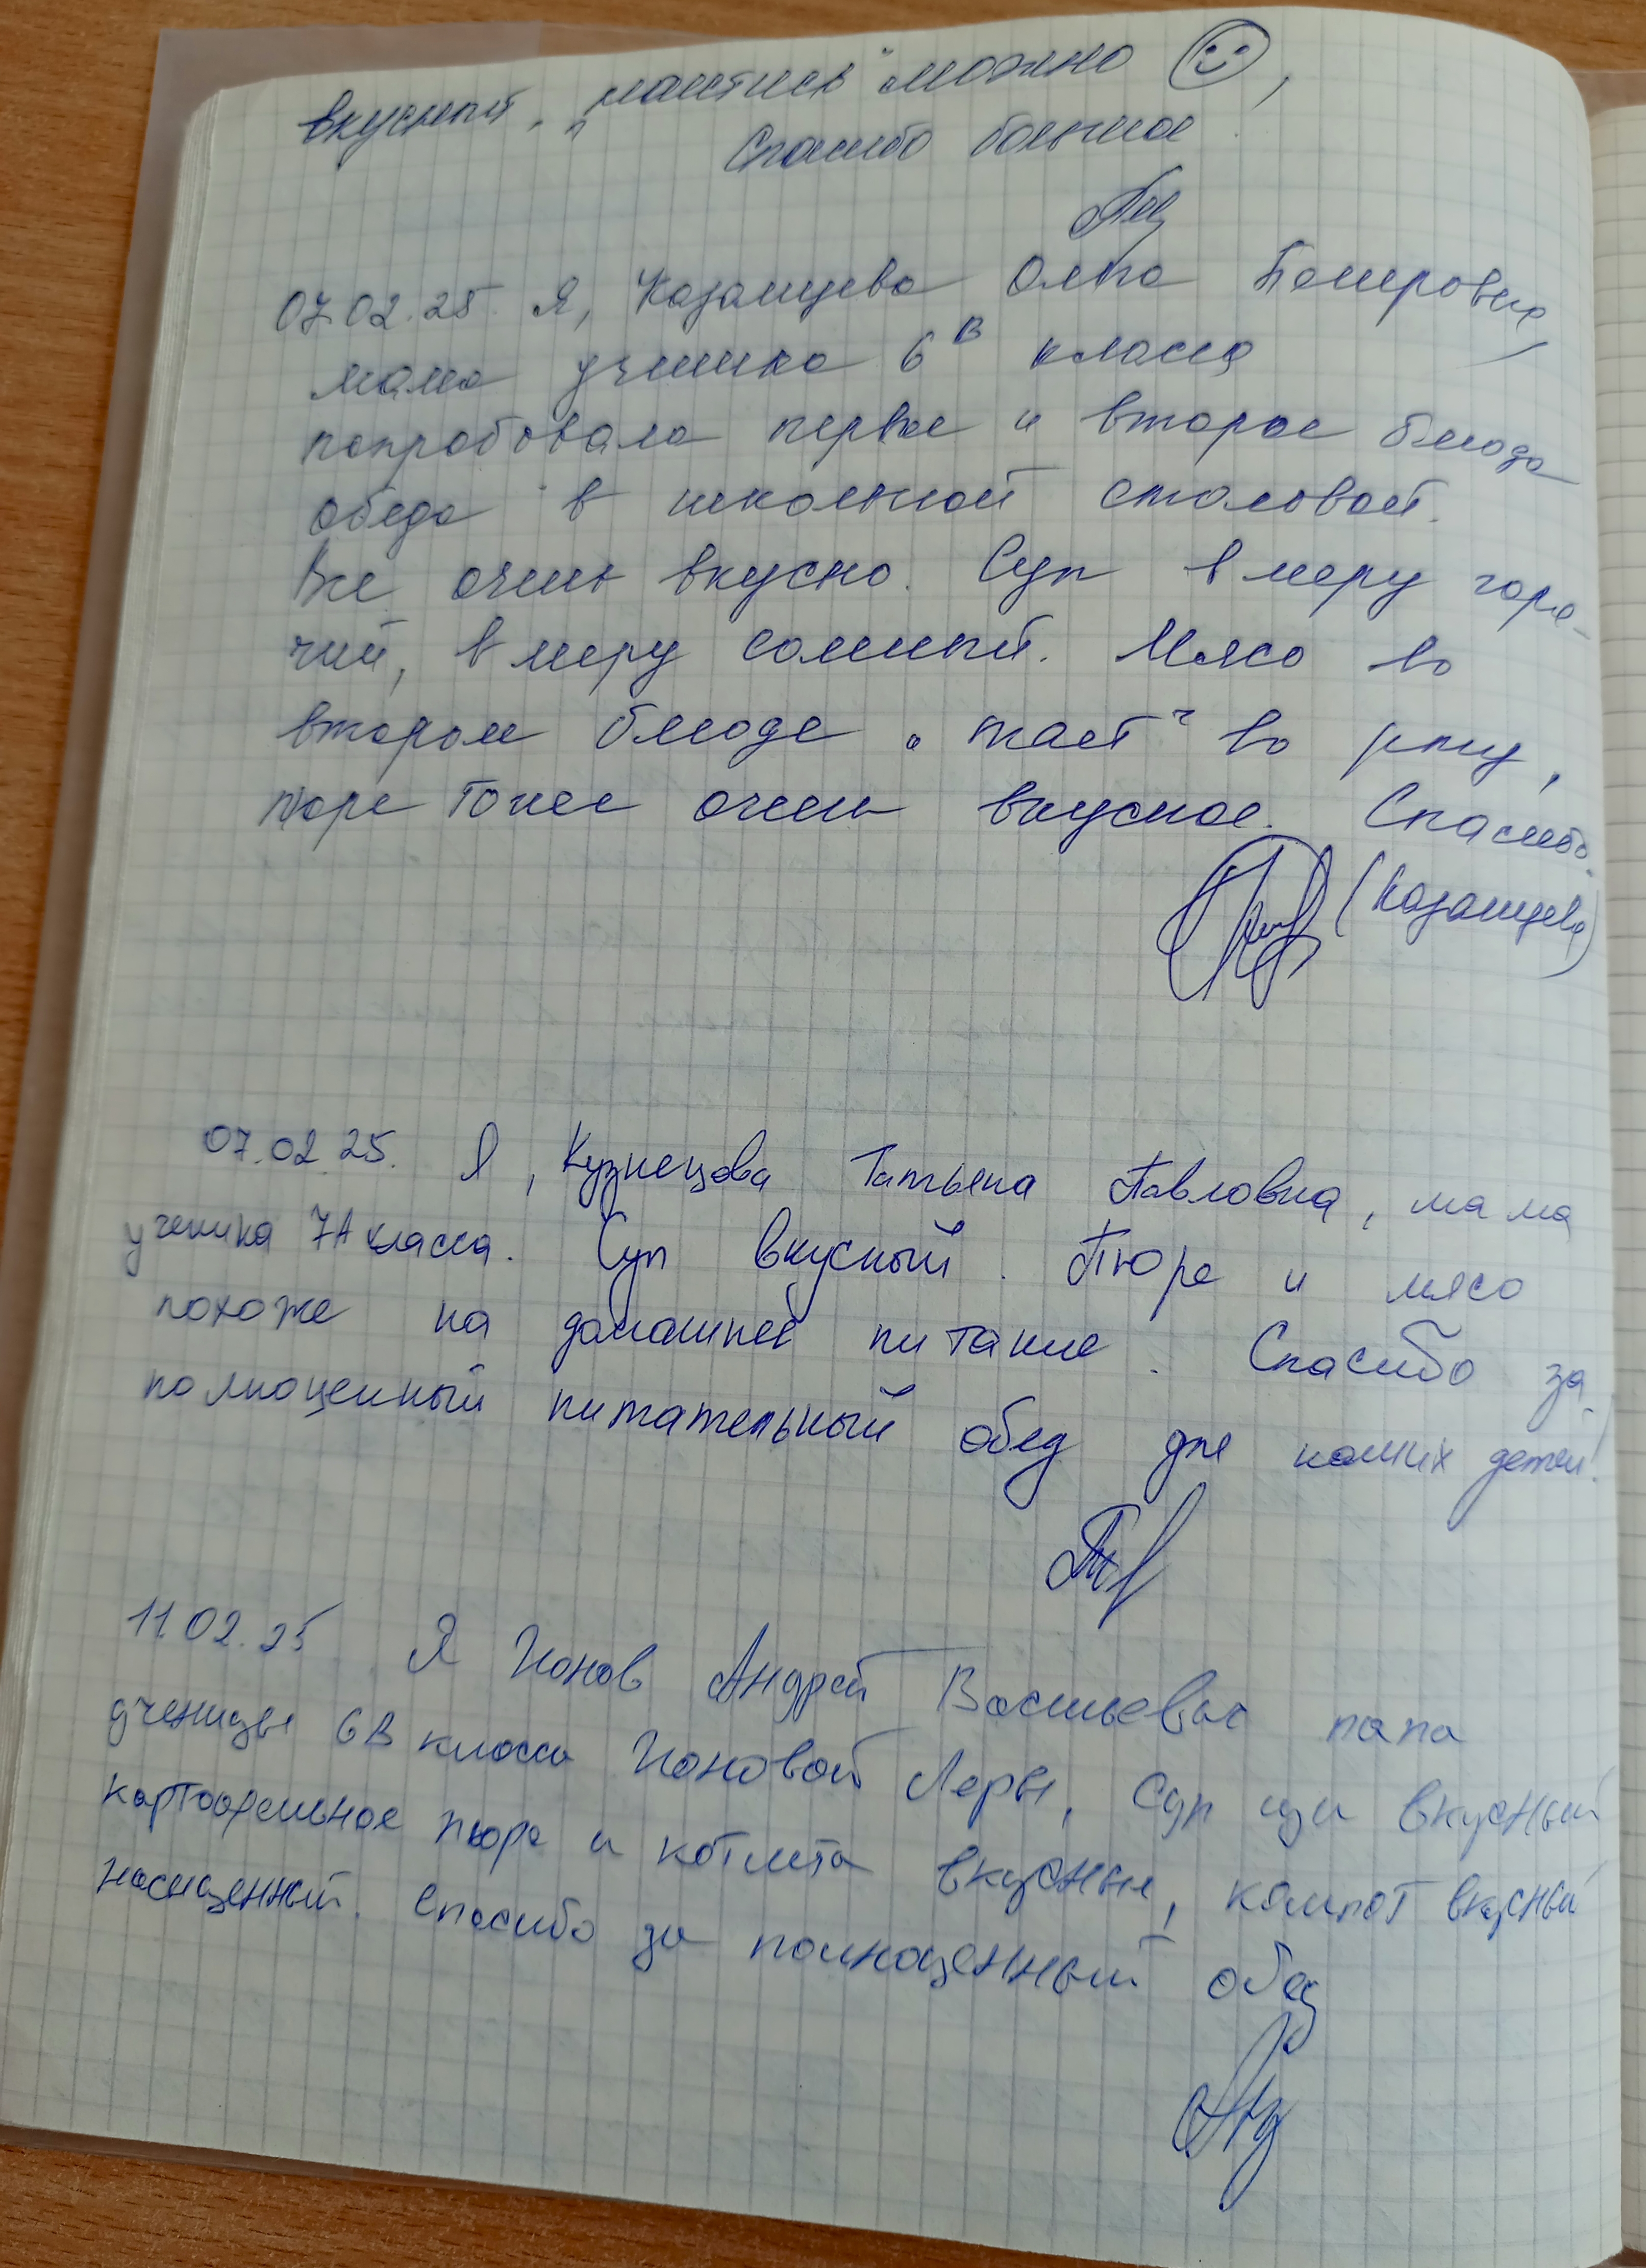 вкусный. „наитись" можно
Спасибо большое.
07.02.25. Я, Казанцева Ольга
мама ученика 6В класса
попробовала первое и второе блюдо
обеда в школьной столовой.
Все очень вкусно. Суп в меру горя-
чий, в меру соленый. Мясо во
втором блюде „тает" во рту,
пюре тоже очень вкусное. Спасибо.
(Казанцева)
07.02.25. Я, Кузнецова Татьяна Павловна, мама
ученика 7А класса. Суп вкусный. Пюре и мясо
похоже на домашнее питание. Спасибо за
полноценный питательный обед для наших детей!
11.02.25 Я Ионов Андрей Васильевич папа
ученицы 6В класса Ионовой Леры, Суп щи вкусный
картофельное пюре и котлета вкусные, компот вкусный
насыщенный. Спасибо за полноценный обед